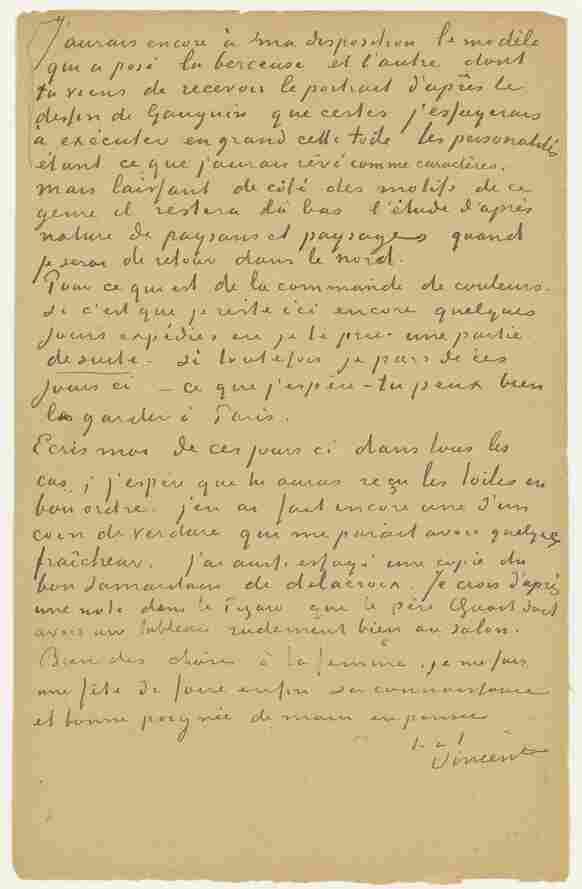 J'aurais encore à ma disposition le modèle
qui a posé la berceuse et l'autre dont
tu viens de recevoir le portrait d'après le
dessin de Gauguin que certes j'essayerais
à exécuter en grand cette toile les personalités
étant ce que j'aurais rêvé comme caractères.
Mais laissant de côté des motifs de ce
genre il restera là bas l'étude d'après
nature de paysans et paysages quand
je serai de retour dans le nord.
Pour ce qui est de la commande de couleurs.
si c'est que je reste ici encore quelques
jours expédies en je te prie une partie
de suite. si toutefois je pars de ces
jours ci – ce que j'espère – tu peux bien
les garder à Paris.
Ecris moi de ces jours ci dans tous les
cas, j'espère que tu auras reçu les toiles en
bon ordre. j'en ai fait encore une d'un
coin de verdure qui me parait avoir quelque
fraîcheur. J'ai aussi essayé une copie du
bon Samaritain de Delacroix. Je crois d'après
une note dans le Figaro que le père Quost doit
avoir un tableau rudement bien au Salon.
Bien des choses à ta femme. je me fais
une fête de faire enfin sa connaissance
et bonne poignée de main en pensée
t. à t.
Vincent